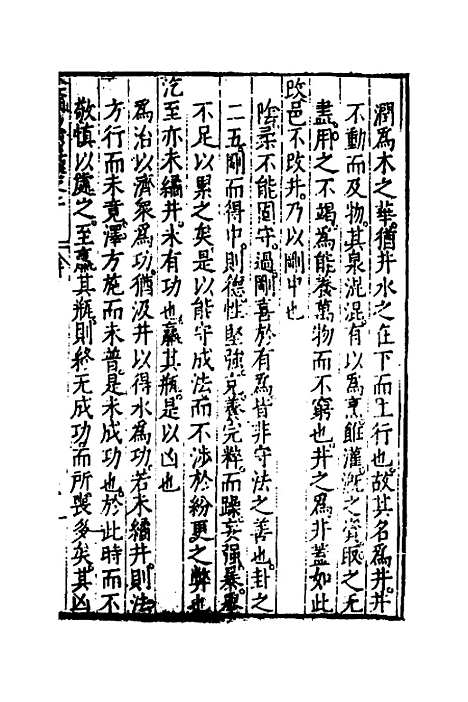 潤為木之華猶井水之在下而上行也故其名為井井
不動而及物其泉混混有以為烹飪灌漑之資取之无
盡用之不竭為能養萬物而不窮也井之為井蓋如此
改邑不改井乃以剛中也
陰柔不能固守過剛喜於有為皆非守法之善也卦之
二五剛而得中則德性堅強充養完粹而躁妄強暴舉
不足以累之矣是以能守成法而不涉於紛更之弊也
汔至亦未繘井未有功也羸其瓶是以凶也
為治以濟衆為功猶汲井以得水為功若未繘井則法
方行而未竟澤方施而未普是未成功也於此時而不
敬慎以處之至羸其瓶則終无成功而所喪多矣其凶